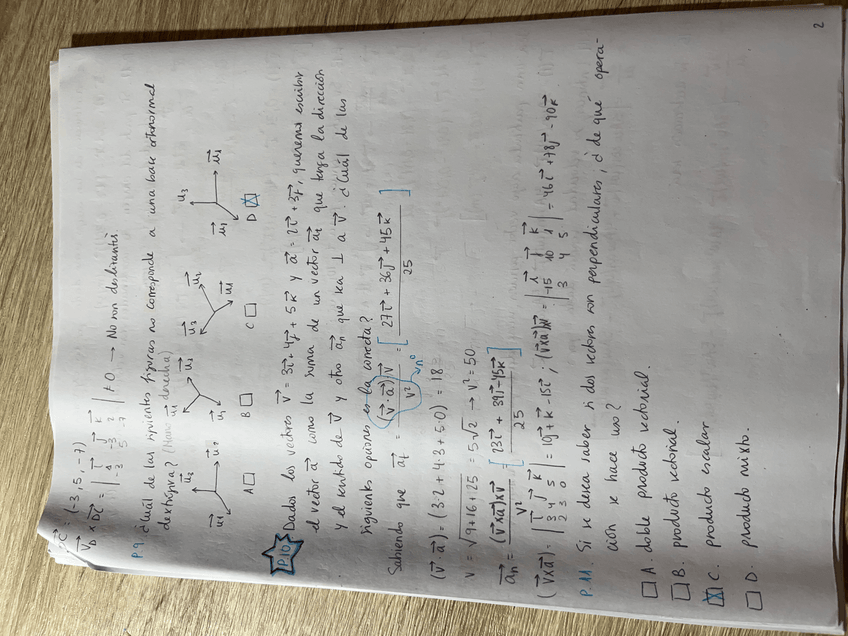 DC : (-3, 5, -7)
V_D × DC = | i j k / 1 -3 2 / -3 5 -7 | ≠ 0 → No son deslizantes
P.9. ¿Cuál de las siguientes figuras no corresponde a una base ortonormal
dextrógira? (Mano derecha)
u₂ u₃ u₂ u₃
u₃ u₁ u₁
A □ B □ C □ D ☒
P.10. Dados los vectores v⃗ = 3i⃗ + 4j⃗ + 5k⃗ y a⃗ = 2i⃗ + 3j⃗, queremos escribir
el vector a⃗ como la suma de un vector a⃗t que tenga la dirección
y el sentido de v⃗ y otro a⃗n que sea ⊥ a v⃗. ¿Cuál de las
siguientes opciones es la correcta?
Sabiendo que a⃗t = (v⃗ · a⃗) v⃗ / v² = [ 27i⃗ + 36j⃗ + 45k⃗ / 25 ]
nº
(v⃗ · a⃗) = (3·2 + 4·3 + 5·0) = 18
v = √9+16+25 = 5√2 → v² = 50
a⃗n = (v⃗×a⃗)×v⃗ / v² = [ 23i⃗ + 39j⃗ - 45k⃗ / 25 ]
(v⃗×a⃗) = | i⃗ j⃗ k⃗ / 3 4 5 / 2 3 0 | = 10j⃗ + k⃗ - 15i⃗ ; (v⃗×a⃗)×v⃗ = | i⃗ j⃗ k⃗ / -15 10 1 / 3 4 5 | = 46i⃗ + 78j⃗ - 90k⃗
P.11. Si se desea saber si dos vectores son perpendiculares, ¿de qué opera-
ción se hace uso?
□ A. doble producto vectorial.
□ B. producto vectorial.
☒ C. producto escalar
□ D. producto mixto.
2